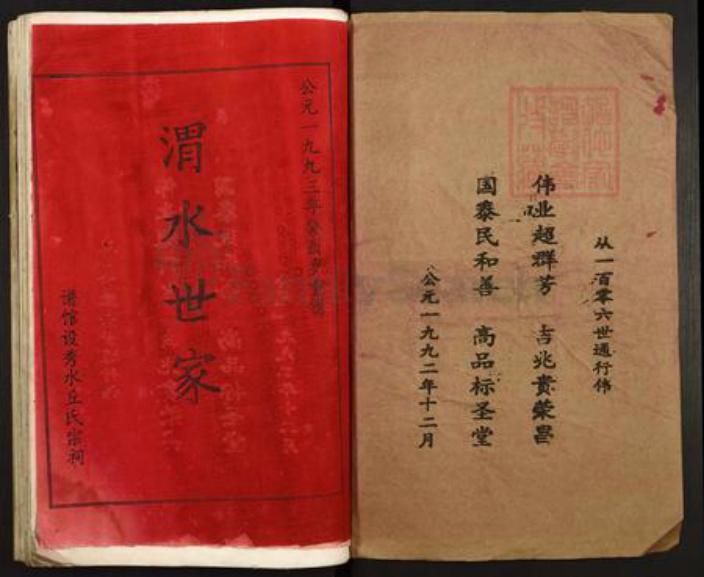 从一百零六世通行伟
伟业超群芳 吉兆贵荣昌
国泰民和善 高品标圣堂
公元一九九二年十二月
公元一九九三年癸酉岁
渭水世家
谱馆设秀水丘氏宗祠